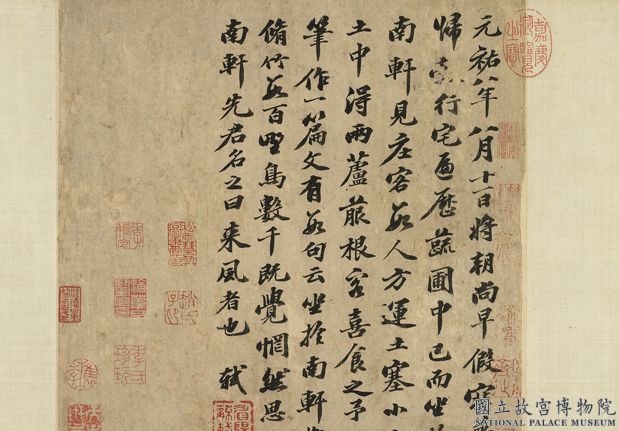 元祐八年八月十一日將朝尚早假寐
歸縠行宅遍歷蔬圃中已而坐於
南軒見庄客數人方運土塞小
土中得兩蘆菔根客喜食之予
筆作一篇文有數句云坐於南軒
脩竹數百野鳥數千既覺惘然思
南軒先君名之曰來風者也 軾
嘉慶御覽之寶
國立故宮博物院
NATIONAL PALACE MUSEUM